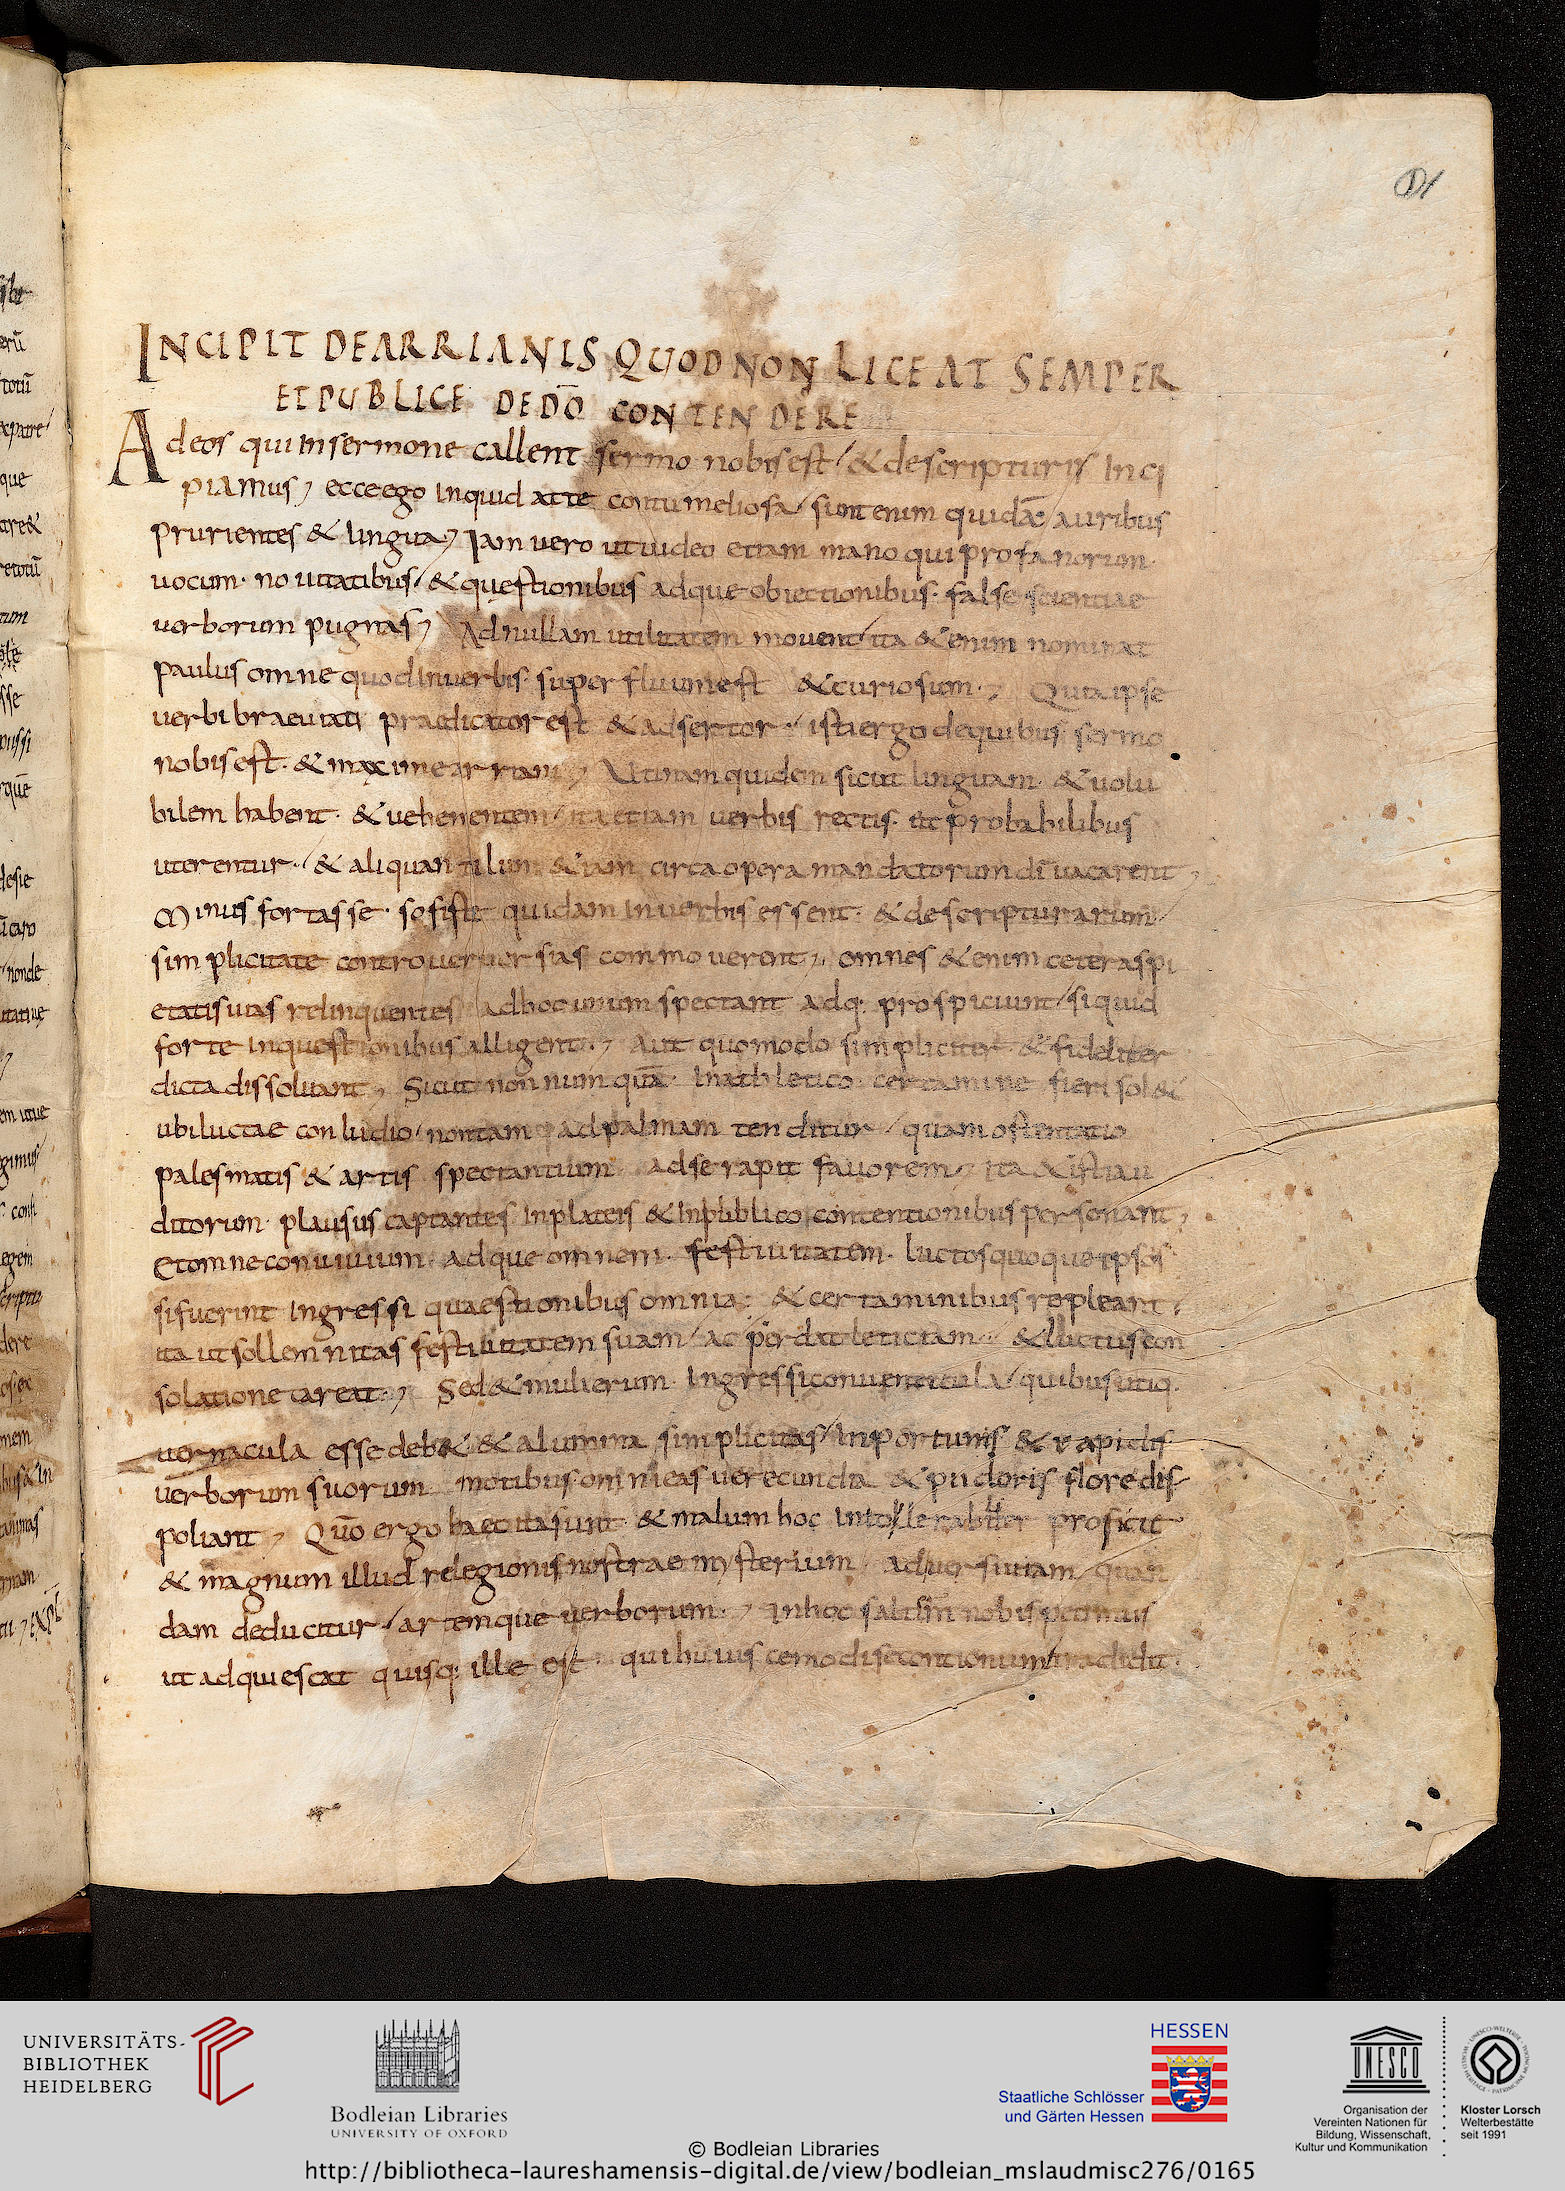 INCIPIT DEARRIANIS QUOD NON LICEAT SEMPER
ET PUBLICE DE DŌ CONTENDERE
Ad eos qui in sermone callent sermo nobis est / & de scripturis Inci
piamus, ecce ego inquid at te contumeliosa / sunt enim quidā auribus
prurientes & lingua, Iam vero ut video etiam mano qui profanorum
vocum · novitatibus / & questionibus adque obiectionibus · false scientiae
verborum pugnas, Ad nullam utilitatem movent / ita & enim nominat
paulus omne quod in verbis superfluum est & curiosum ·, Quia ipse
verbi braeviati praedicator est & adsertor · / isti ergo de quibus sermo
nobis est · & maxime arriani, Utinam quidem sicut linguam · & volu
bilem habent · & vehementem / ita etiam verbis rectis et probabilibus
uterentur · / & aliquantulum & iam circa opera mandatorum dī vacarent,
Minus fortasse · sofiste quidam in verbis essent · & de scripturarum
simplicitate controversias commoverent, omnes & enim ceteras pi
etatis vias relinquentes ad hoc unum spectant adq: prospiciunt / si quid
forte in questionibus alligent ·, Aut quomodo simpliciter & fideliter
dicta dissolvant, Sicut non numquā · In athletico certamine fieri sol&
ubi luctae conludio / non tam ad palmam tenditur / quam ostentatio
palesmatis & artis spectantium ad se rapit favorem, Ita & isti au
ditorum plausus captantes In plateis & In publico contentionibus personant,
Et omne convivium adque omnem · festivitatem · luctos quoque ipsos
si fuerint Ingressi quaestionibus omnia & certaminibus repleant ·
ita ut sollemnitas festivitatem suam / ac perdat leticiam · & luctus con
solatione careat ·, Sed & mulierum Ingressi conventicula / quibus utiq.
vernacula esse deb& & alumna simplicitas / Inportunis & rapidis
verborum suorum motibus omni eas verecundia & pudoris flore dis
poliant, Quō ergo haec ita sunt & malum hoc Intollerabiliter proficit
& magnum illud relegionis nostrae mysterium ad versutiam quan
dam deducitur / artemque verborum ·, In hoc saltim nobis petimus
ut adquiescat quisq: ille est qui huiuscemodi se contionum tradidit ·
UNIVERSITÄTS-
BIBLIOTHEK
HEIDELBERG
Bodleian Libraries
UNIVERSITY OF OXFORD
HESSEN
Staatliche Schlösser
und Gärten Hessen
UNESCO
Organisation der
Vereinten Nationen für
Bildung, Wissenschaft,
Kultur und Kommunikation
Kloster Lorsch
Welterbestätte
seit 1991
© Bodleian Libraries
http://bibliotheca-laureshamensis-digital.de/view/bodleian_mslaudmisc276/0165